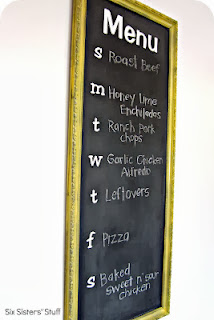 Menu
s Roast Beef
m Honey Lime
Enchiladas
t Ranch Pork
Chops
w Garlic Chicken
Alfredo
t Leftovers
f Pizza
s Baked
sweet n' sour
chicken
Six Sisters' Stuff